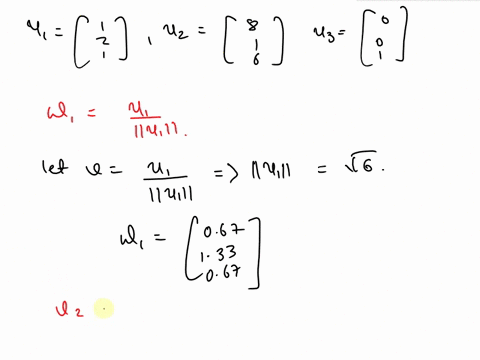 u₁ = [1 2 1], u₂ = [8 1 6] u₃ = [0 0 1]
w₁ = u₁ / ||u₁||.
let v = u₁ / ||u₁|| => ||u₁|| = √6.
w₁ = [0.67 1.33 0.67]
v₂